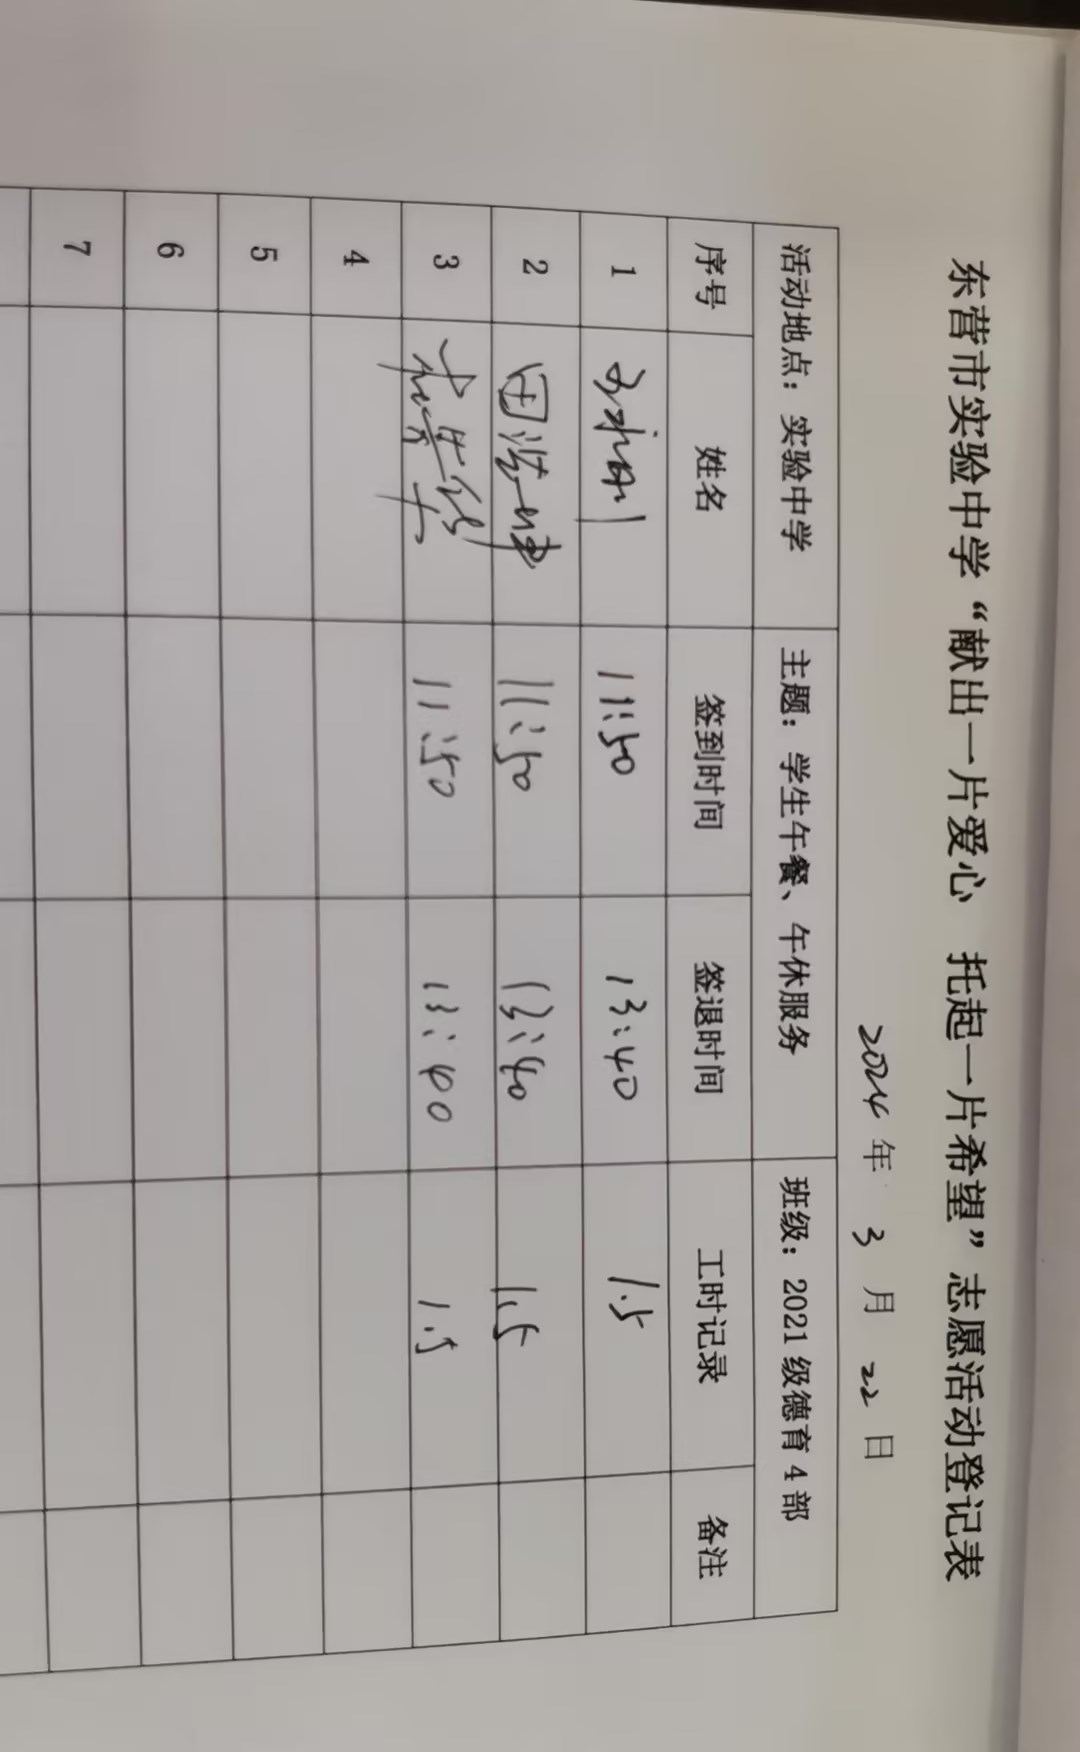 东营市实验中学“献出一片爱心 托起一片希望”志愿活动登记表
2024 年 3 月 22 日
活动地点：实验中学 主题：学生午餐、午休服务 班级：2021 级德育 4 部
序号 姓名 签到时间 签退时间 工时记录 备注
1 11:50 13:40 1.5
2 田 11:50 13:40 1.5
3 11:50 13:40 1.5
4
5
6
7